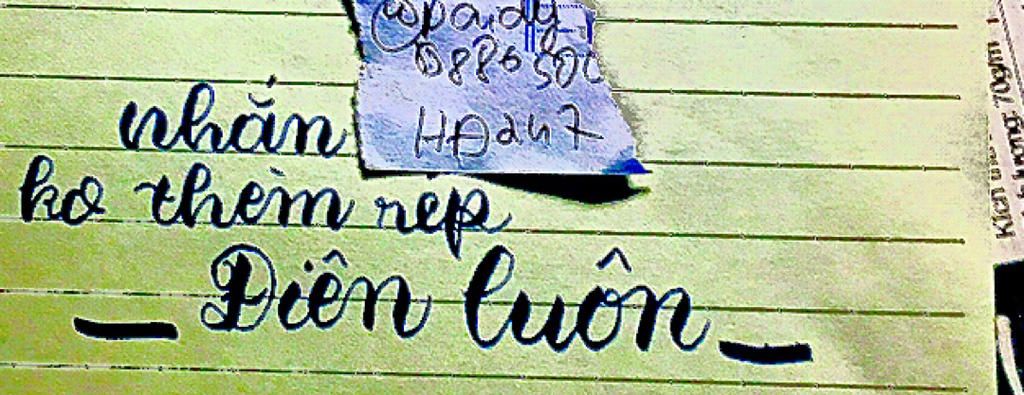 @pa.idy
0886500
HĐ247
nhắn
ko thèm rép
_ Điên luôn _
lượng: 70g/m